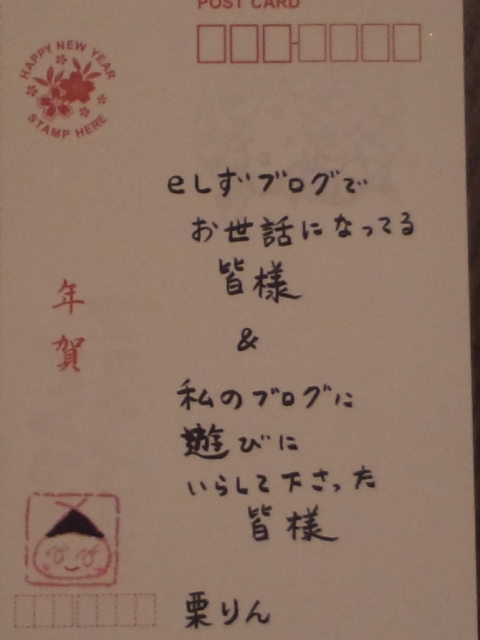 POST CARD
HAPPY NEW YEAR
STAMP HERE
eしずブログで
お世話になってる
皆様
&
私のブログに
遊びに
いらして下さった
皆様
栗りん
年賀